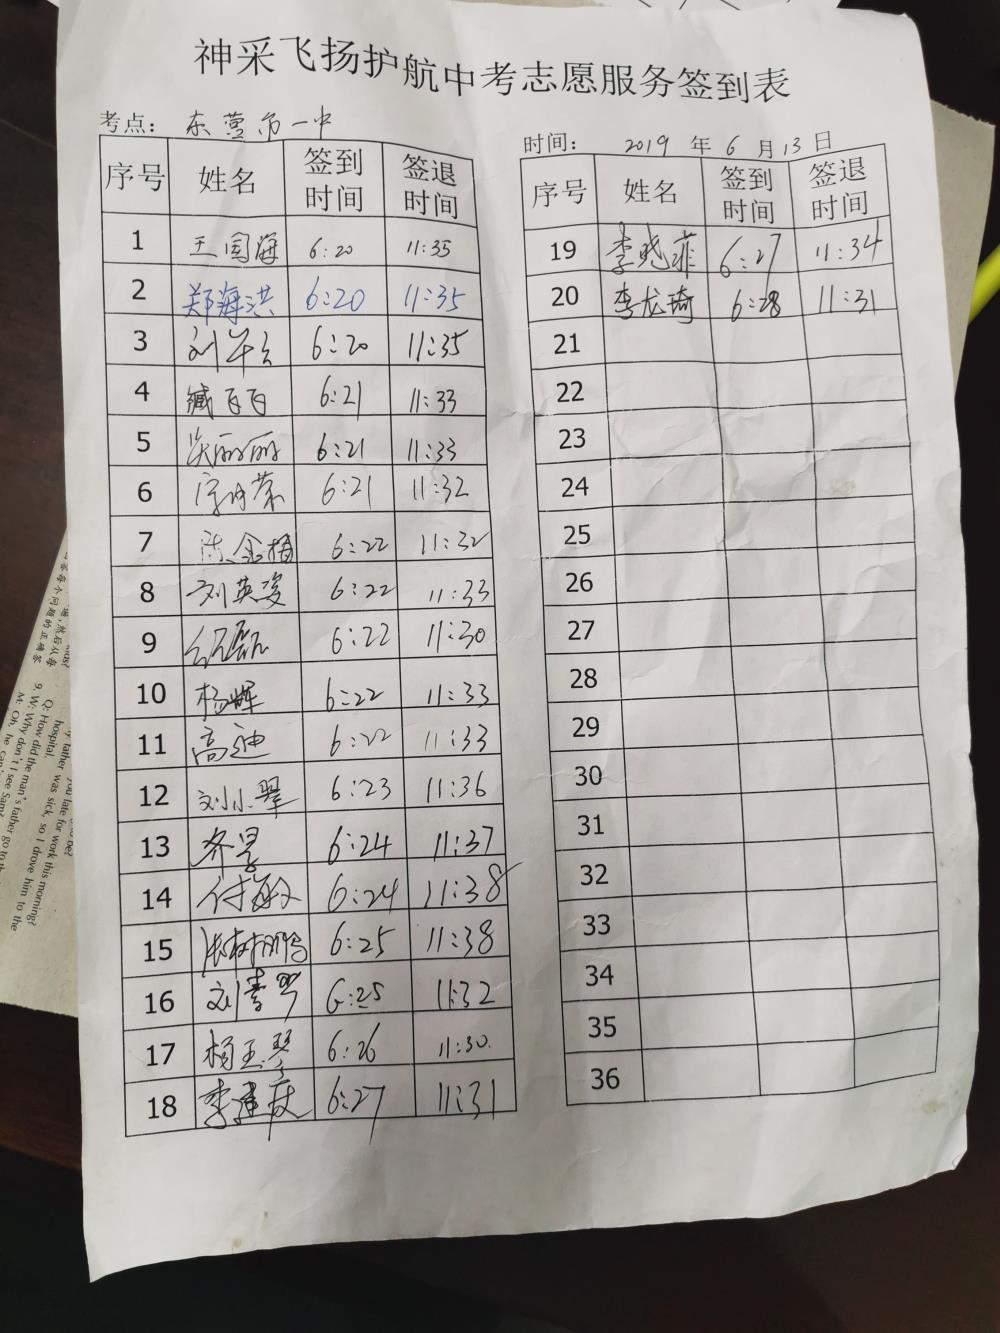 神采飞扬护航中考志愿服务签到表
考点： 东营市一中
时间： 2019 年 6 月 13 日
序号 姓名 签到时间 签退时间
1 王国海 6:20 11:35
2 郑海洪 6:20 11:35
3 刘 6:20 11:35
4 臧 6:21 11:33
5 丽丽 6:21 11:33
6 6:21 11:32
7 陈金梅 6:22 11:32
8 刘英姿 6:22 11:33
9 磊 6:22 11:30
10 杨辉 6:22 11:33
11 高迪 6:22 11:33
12 刘小翠 6:23 11:36
13 齐 6:24 11:37
14 付敏 6:24 11:38
15 张树鹏 6:25 11:38
16 刘青琴 6:25 11:32
17 杨玉琴 6:26 11:30
18 李建庆 6:27 11:31
序号 姓名 签到时间 签退时间
19 李晓菲 6:27 11:34
20 李龙琦 6:28 11:31
21
22
23
24
25
26
27
28
29
30
31
32
33
34
35
36
father was sick, so I drove him to the
hospital.
Q: How did the man's father go to
9. W: Why don't I see Sam?
M: Oh, he can